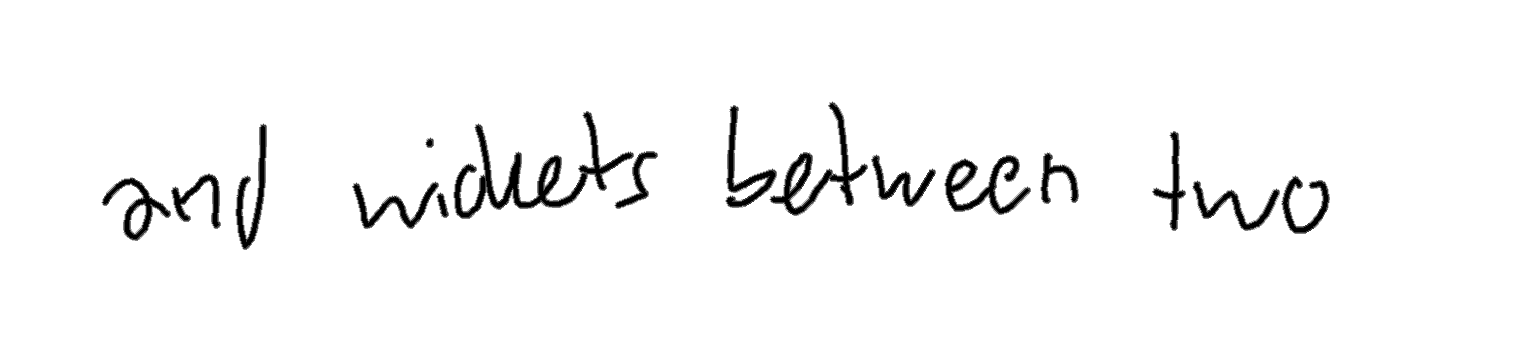 and wickets between two